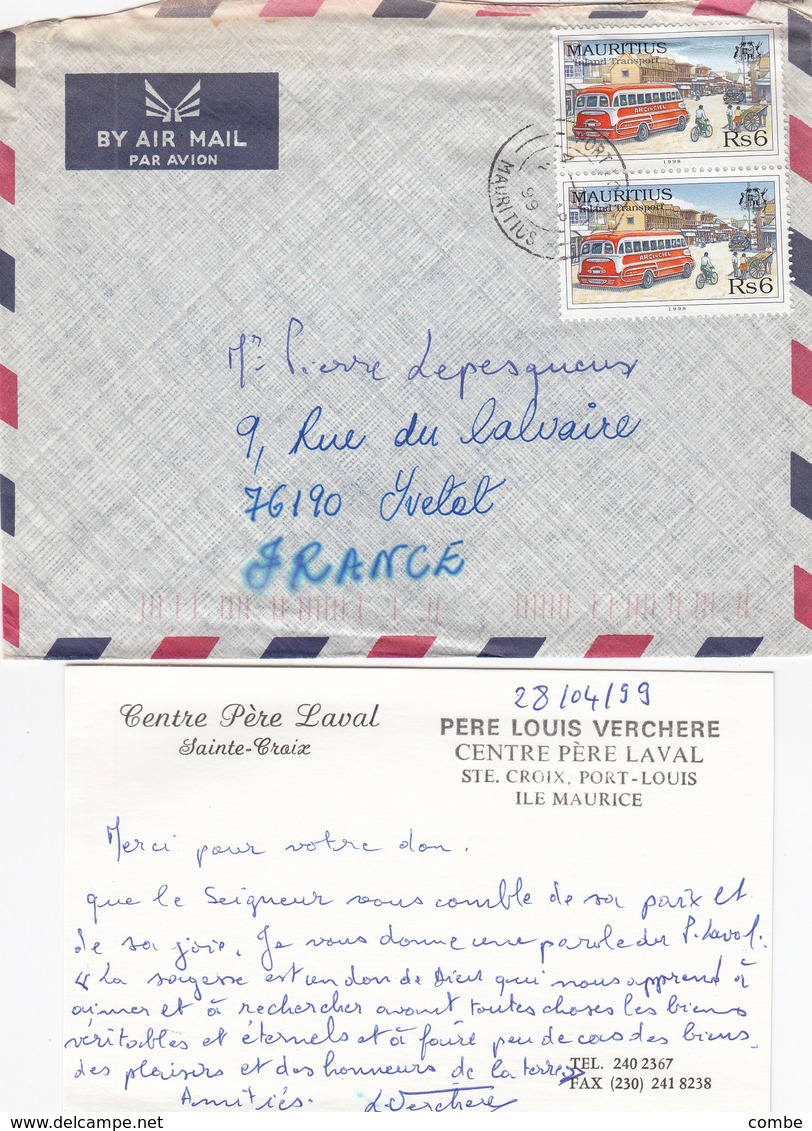 MAURITIUS
Inland Transport
ARC EN CIEL
Rs6
1998
BY AIR MAIL
PAR AVION
PORT
MAURITIUS
99
MAURITIUS
Inland Transport
ARC EN CIEL
Rs6
1998
Mr Pierre Lepesqueux
9, Rue du Calvaire
76190 Yvetot
FRANCE
Centre Père Laval
Sainte-Croix
28/04/99
PERE LOUIS VERCHERE
CENTRE PÈRE LAVAL
STE. CROIX, PORT-LOUIS
ILE MAURICE
Merci pour votre don.
que le Seigneur vous comble de sa paix et
de sa joie. Je vous donne une parole du P. Laval.
"La sagesse est un don de Dieu qui nous apprend à
aimer et à rechercher avant toutes choses les biens
véritables et éternels et à faire peu de cas des biens,
des plaisirs et des honneurs de la terre"
TEL. 240 2367
FAX (230) 241 8238
Amitiés. L. Verchere
delcampe.net
combe